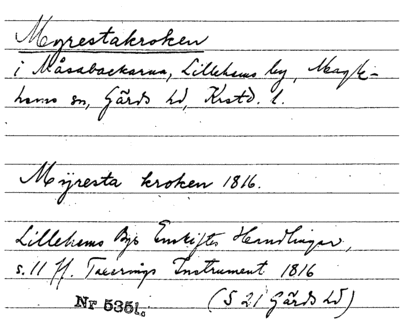 Myrestakroken
i Måsabackarna, Lillehems by, Maglehems sn, Gärds hd, Krstd. l.
Mÿresta kroken 1816.
Lillehems Bys Enskiftes Handlingar,
s. 11 ff. Taxerings Instrument 1816
Nr 5351. (S 21 Gärds hd)